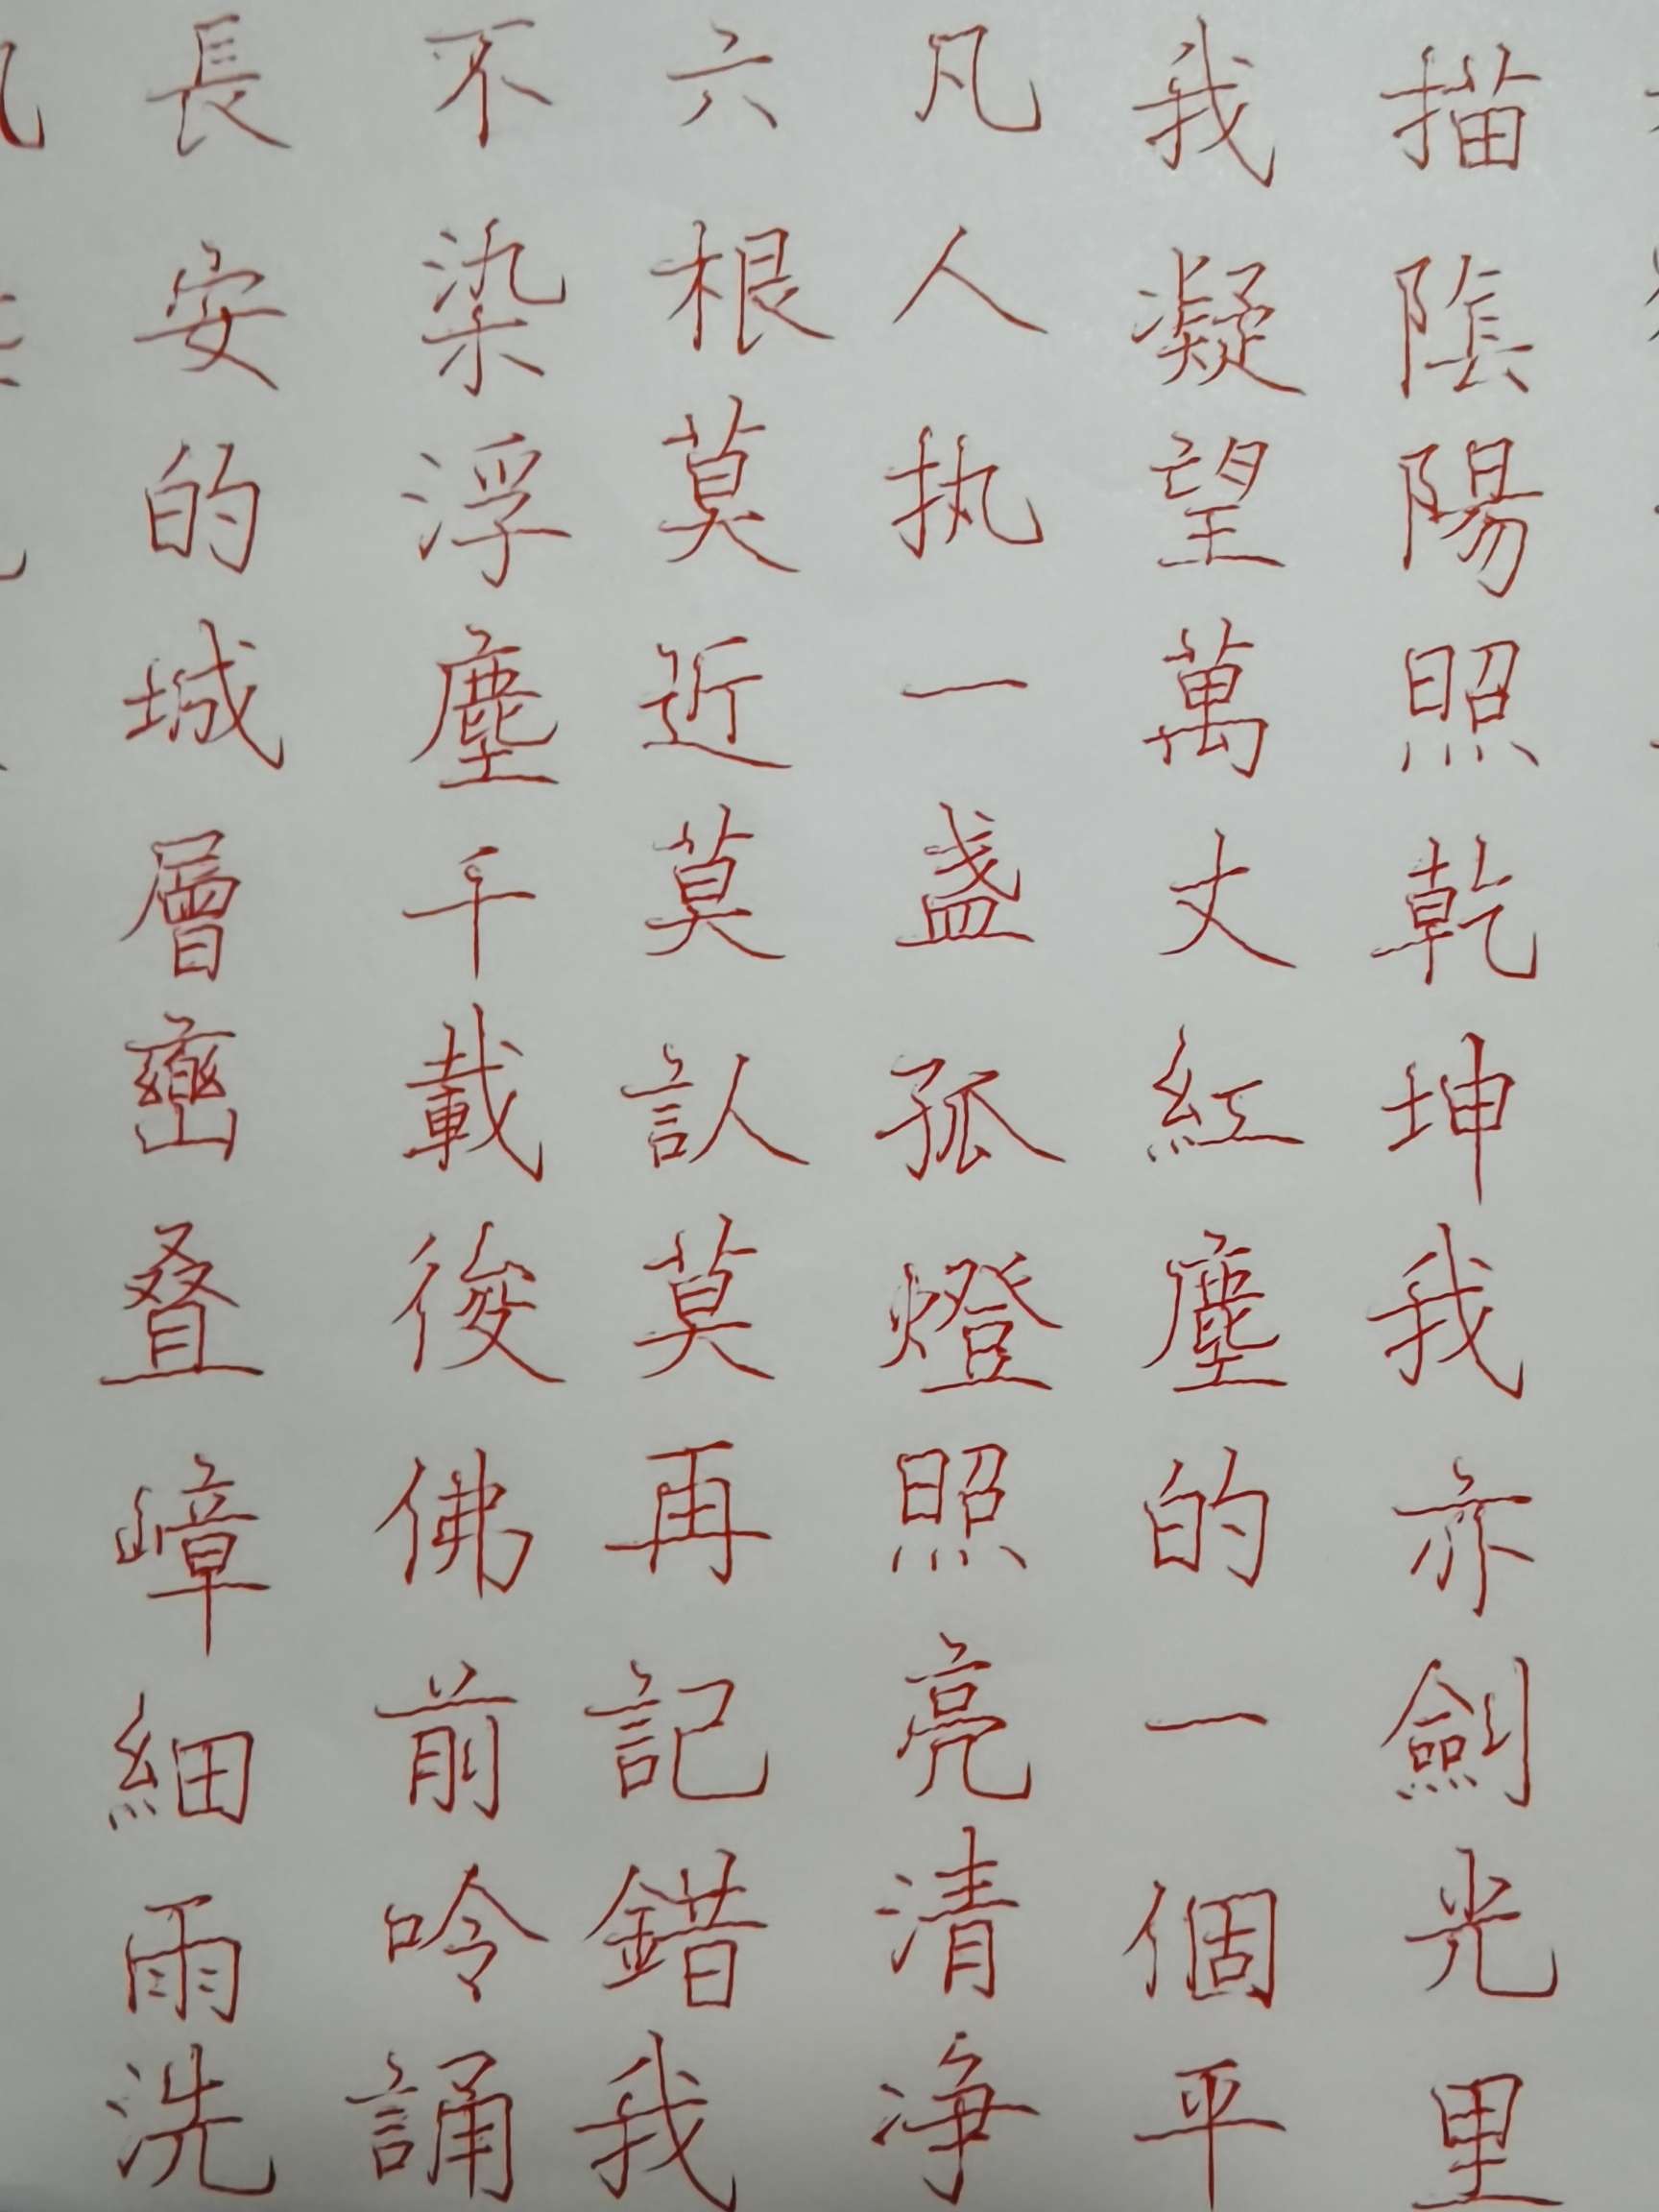 描陰陽照乾坤我亦劍光里
我凝望萬丈紅塵的一個平
凡人执一盏孤燈照亮清净
六根莫近莫訟莫再記錯我
不染浮塵千載後佛前吟誦
長安的城層巒叠嶂細雨洗